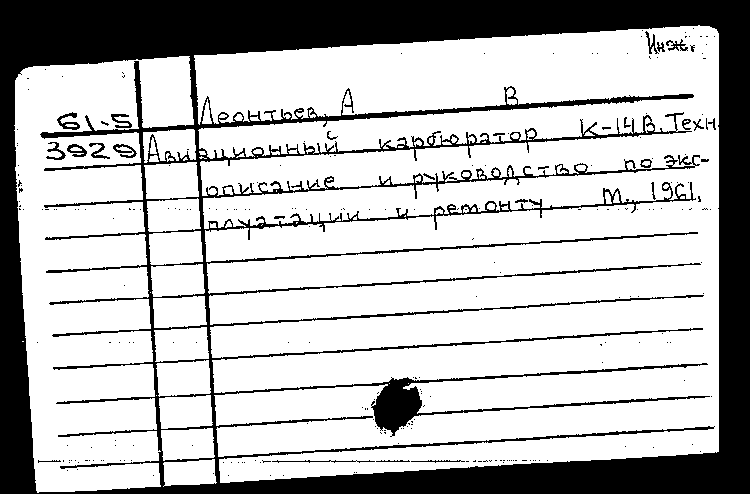 Инж.
61-5 Леонтьев, А В
3929 Авиационный карбюратор К-14В. Техн.
описание и руководство по экс-
плуатации и ремонту. М., 1961.